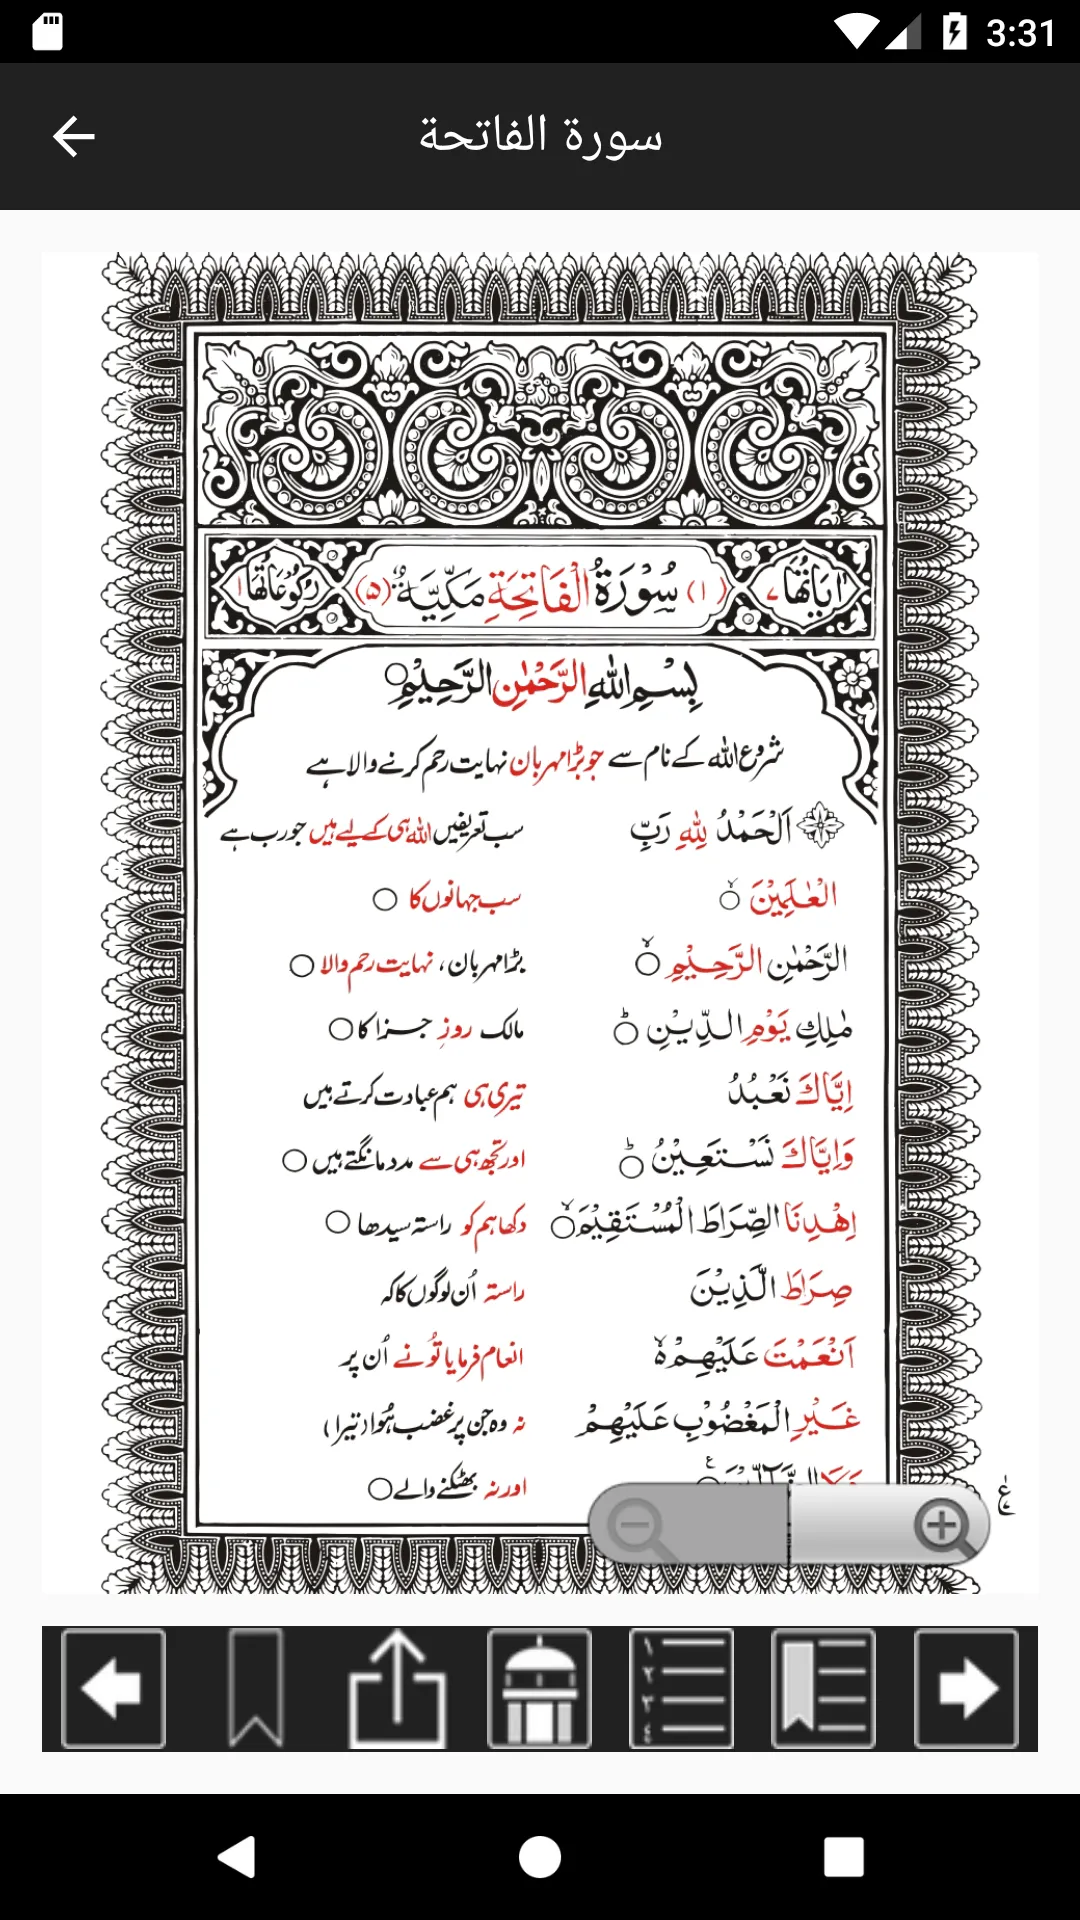 3:31
سورة الفاتحة
اٰيَاتُهَا ٧ (١) سُوْرَةُ الْفَاتِحَةِ مَكِّيَّةٌ (٥) رُكُوْعَاتُهَا ١
بِسْمِ اللّٰهِ الرَّحْمٰنِ الرَّحِيْمِ
شروع اللہ کے نام سے جو بڑا مہربان نہایت رحم کرنے والا ہے
اَلْحَمْدُ لِلّٰهِ رَبِّ سب تعریفیں اللہ ہی کے لیے ہیں جو رب ہے
الْعٰلَمِيْنَ سب جہانوں کا
الرَّحْمٰنِ الرَّحِيْمِ بڑا مہربان، نہایت رحم والا
مٰلِكِ يَوْمِ الدِّيْنِ مالک روزِ جزا کا
اِيَّاكَ نَعْبُدُ تیری ہی ہم عبادت کرتے ہیں
وَاِيَّاكَ نَسْتَعِيْنُ اور تجھ ہی سے مدد مانگتے ہیں
اِهْدِنَا الصِّرَاطَ الْمُسْتَقِيْمَ دکھا ہم کو راستہ سیدھا
صِرَاطَ الَّذِيْنَ راستہ اُن لوگوں کا کہ
اَنْعَمْتَ عَلَيْهِمْ انعام فرمایا تُو نے اُن پر
غَيْرِ الْمَغْضُوْبِ عَلَيْهِمْ نہ وہ جن پر غضب ہُوا (تیرا)
اور نہ بھٹکنے والے
ع
١
٢
٣
٤